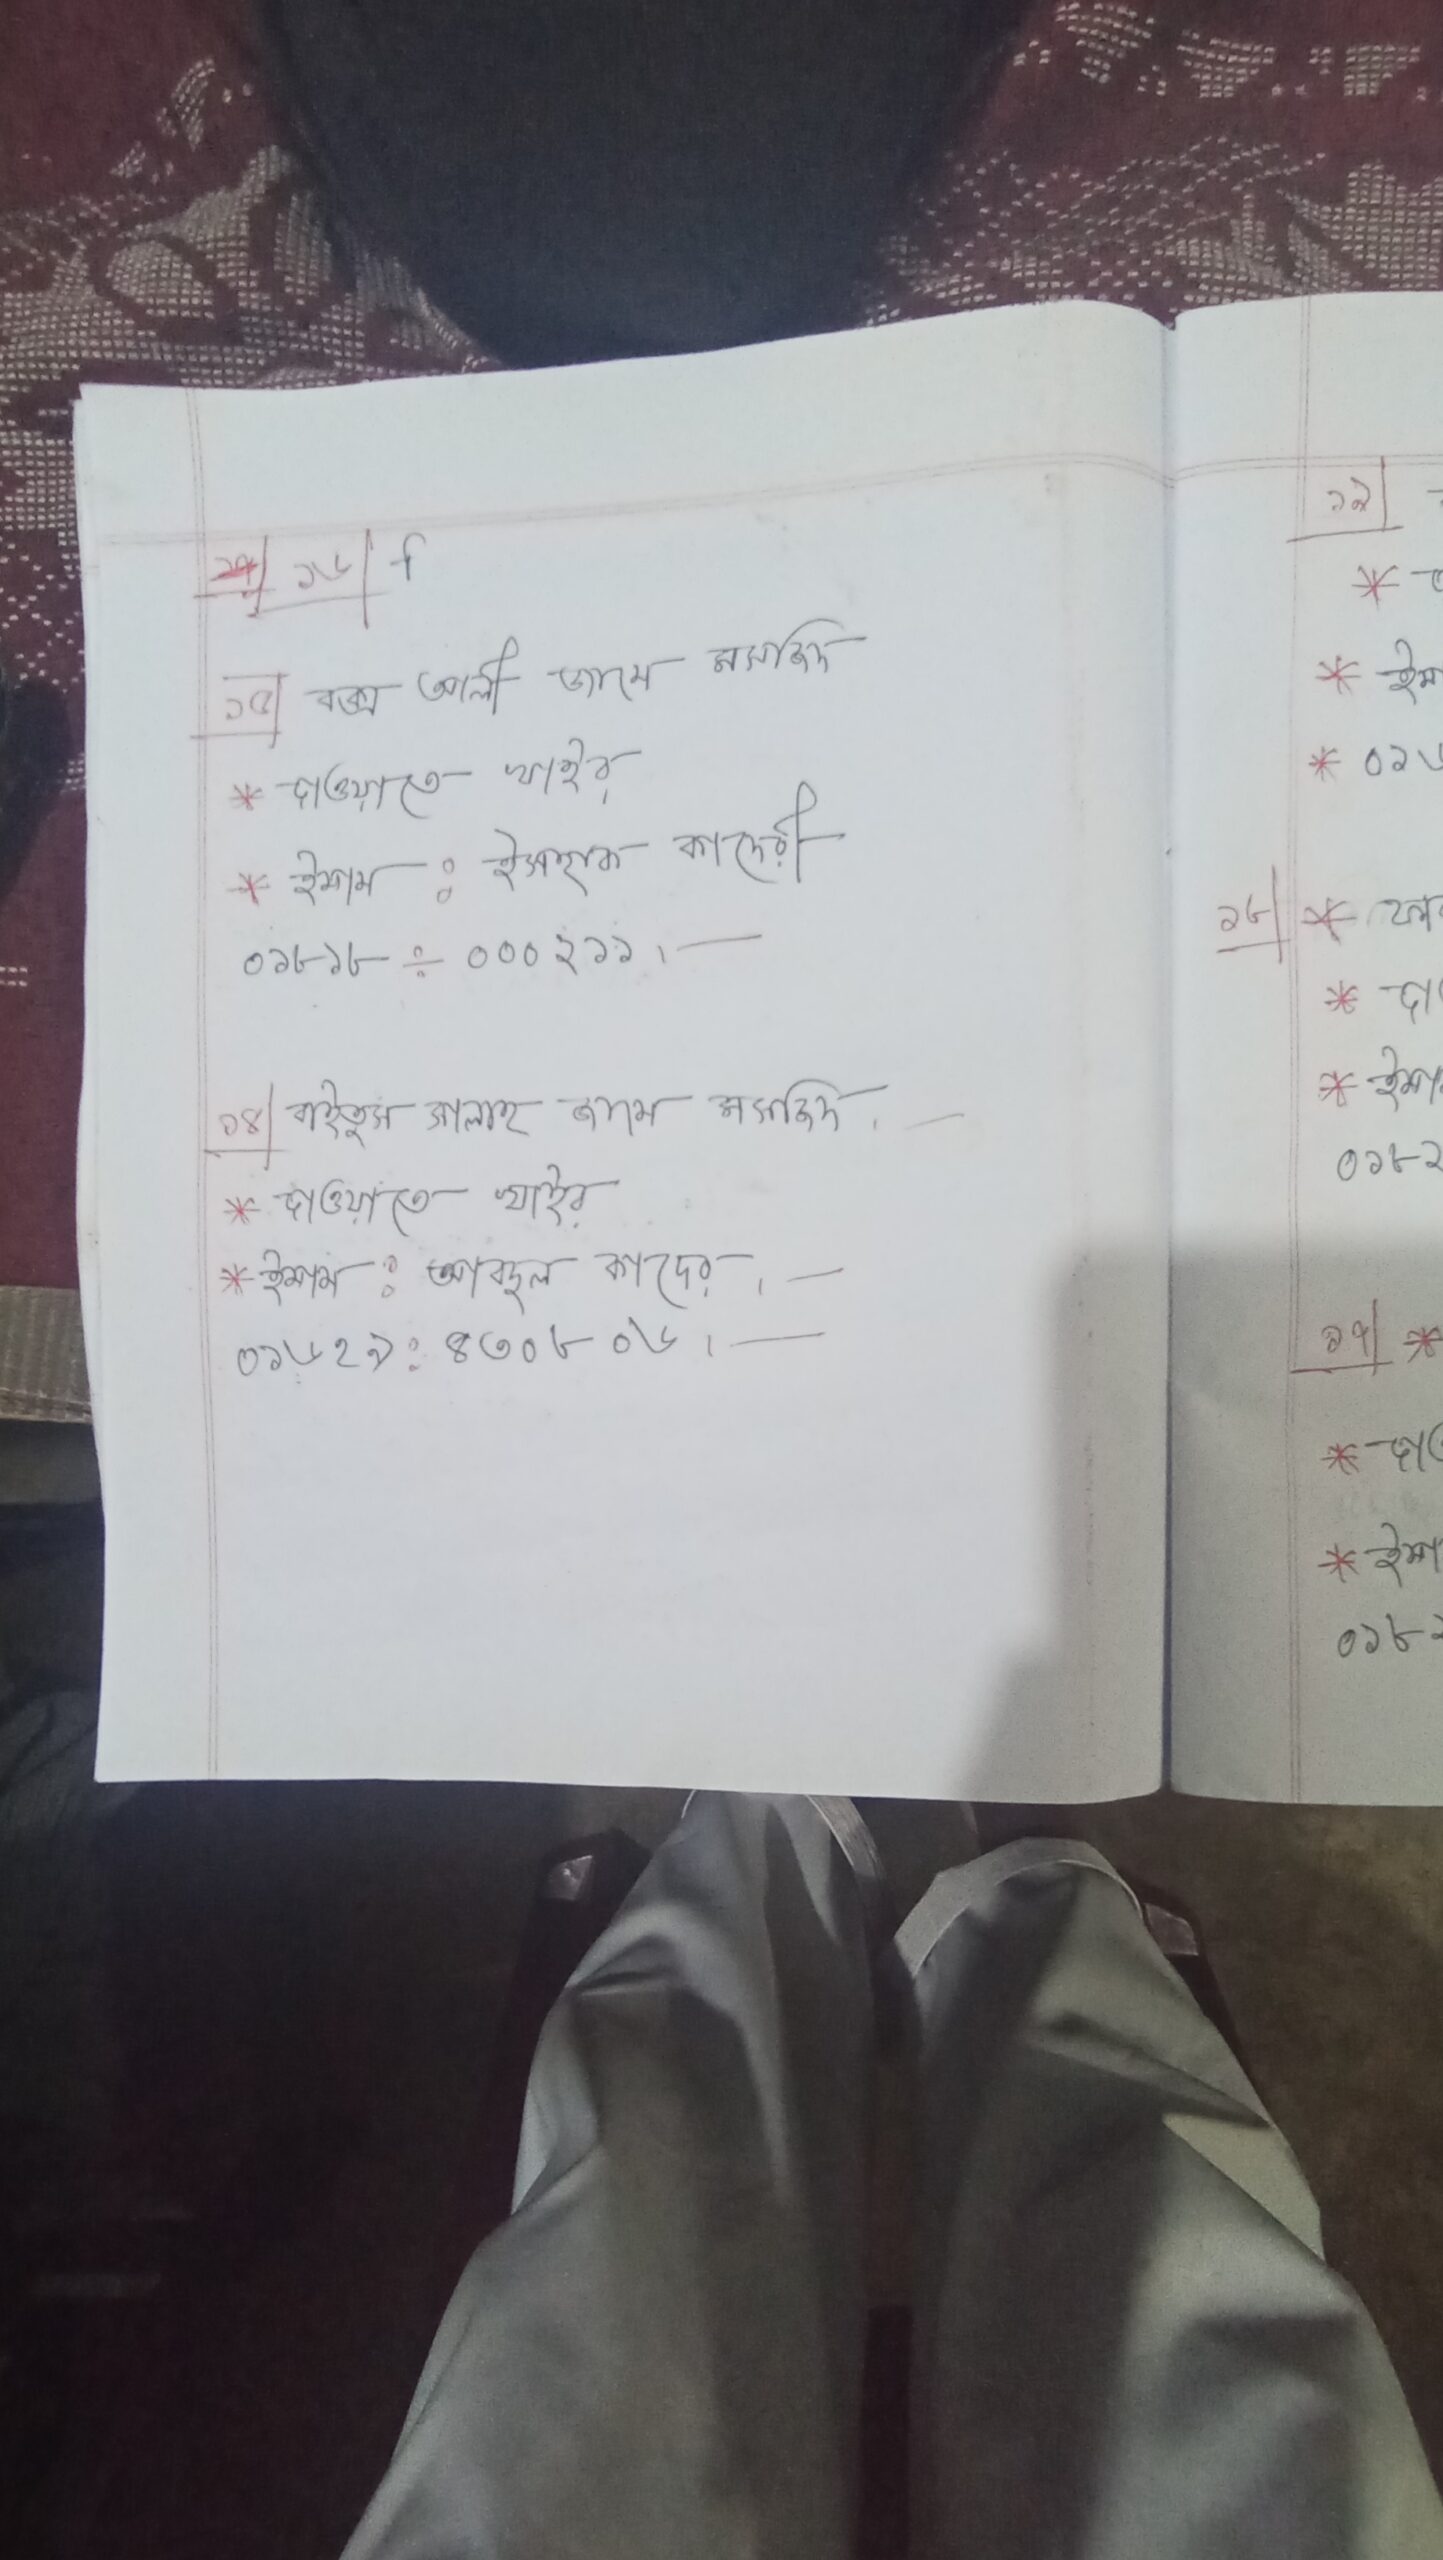 ১৬|
১৫| বক্স আলী জামে মসজিদ
* দাওয়াতে খাইর
* ইমাম : ইসহাক কাদেরী
০১৮১৮ ÷ ০০০২১১। —
১৪| বাইতুস সালাহ জামে মসজিদ। —
* দাওয়াতে খাইর
* ইমাম : আবদুল কাদের। —
০১৬২৯: ৪৩০৮০৬। —
১৯|
*
*
* ০১৬
১৮| *
*
*
০১৮২
১৭| *
*
*
০১৮২